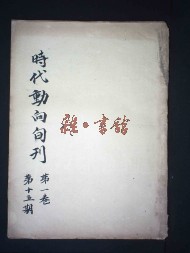 時代動向旬刊
第一卷
第十五期